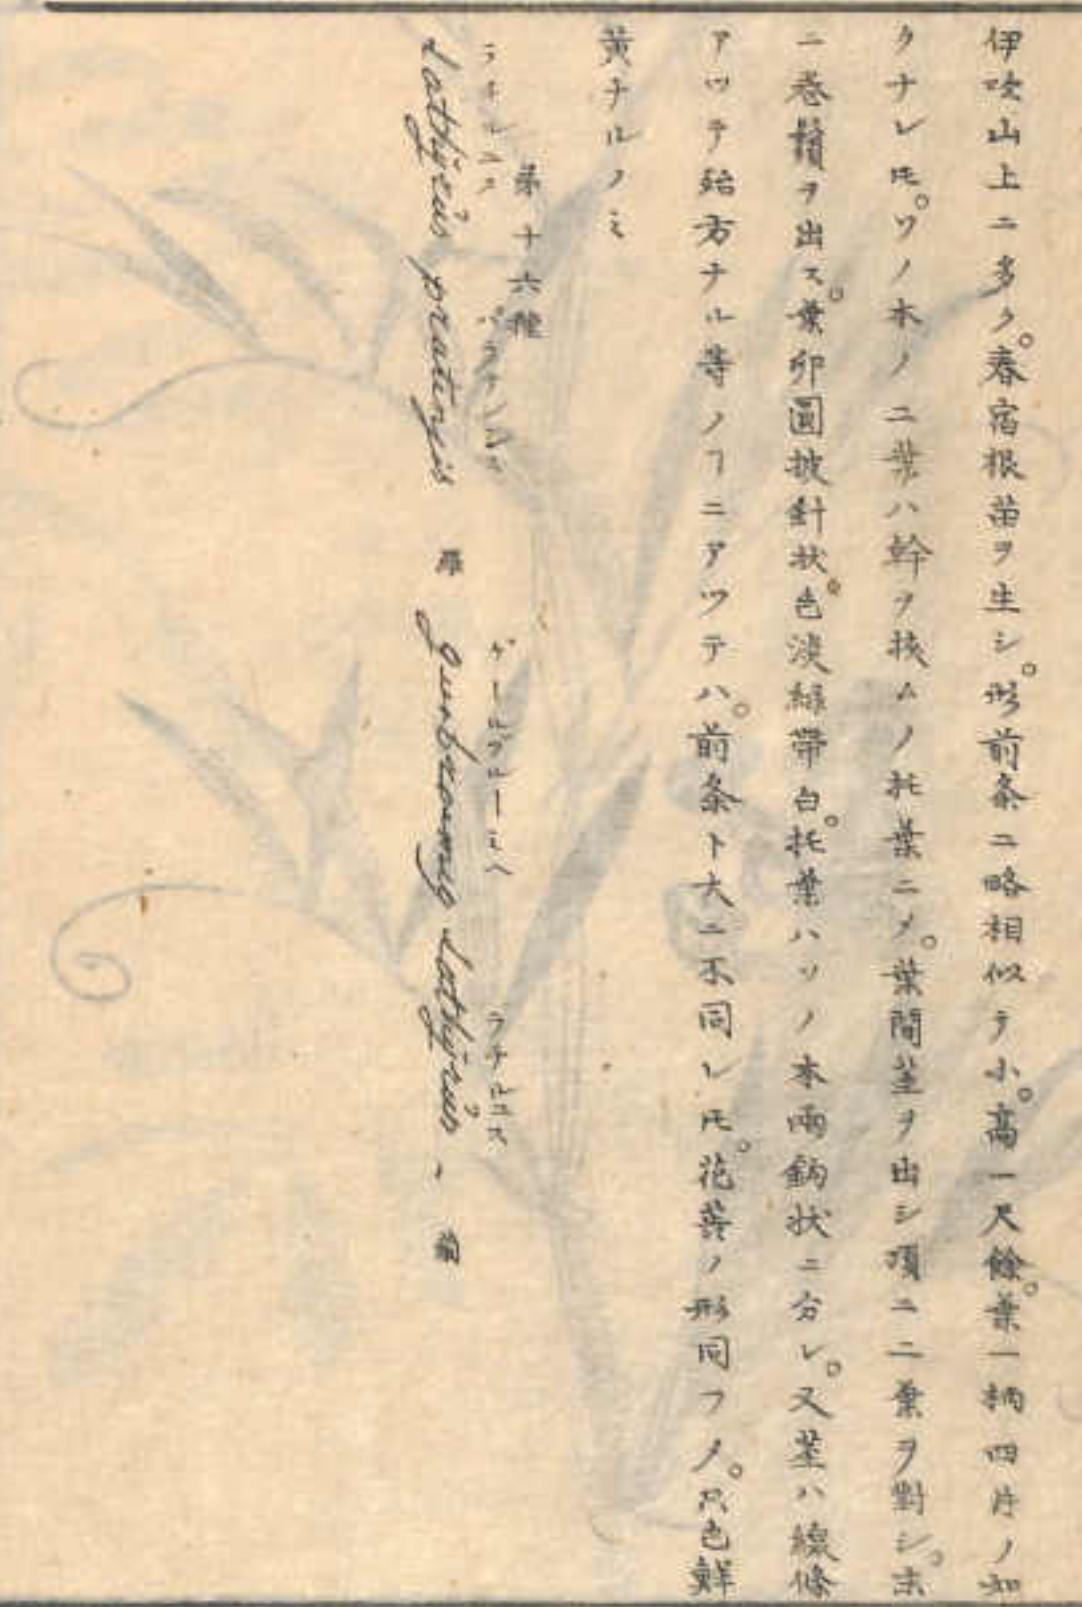 伊吹山上ニ多ク。春宿根苗ヲ生シ。形前条ニ略相似テ小。高一尺餘。葉一柄四片ノ如
クナレ𪜈。ソノ本ノ二葉ハ幹ヲ挾ムノ托葉ニ〆。葉間茎ヲ出シ頂ニ二葉ヲ對シ。末
ニ巻鬚ヲ出ス。葉卵圓披針状。色淡緑帶白。托葉ハソノ本両鈎状ニ分レ。又茎ハ線條
アツテ殆方ナル等ノヿニアツテハ。前条ト大ニ不同レ𪜈。花蕚ノ形同フ〆。只色鮮
黄ナルノミ
第十六種
ラチルス プラテンシス ゲールブルーミヘ ラチルユス
Lathÿrus pratensis 羅 geelbloemig Lathÿrus、蘭